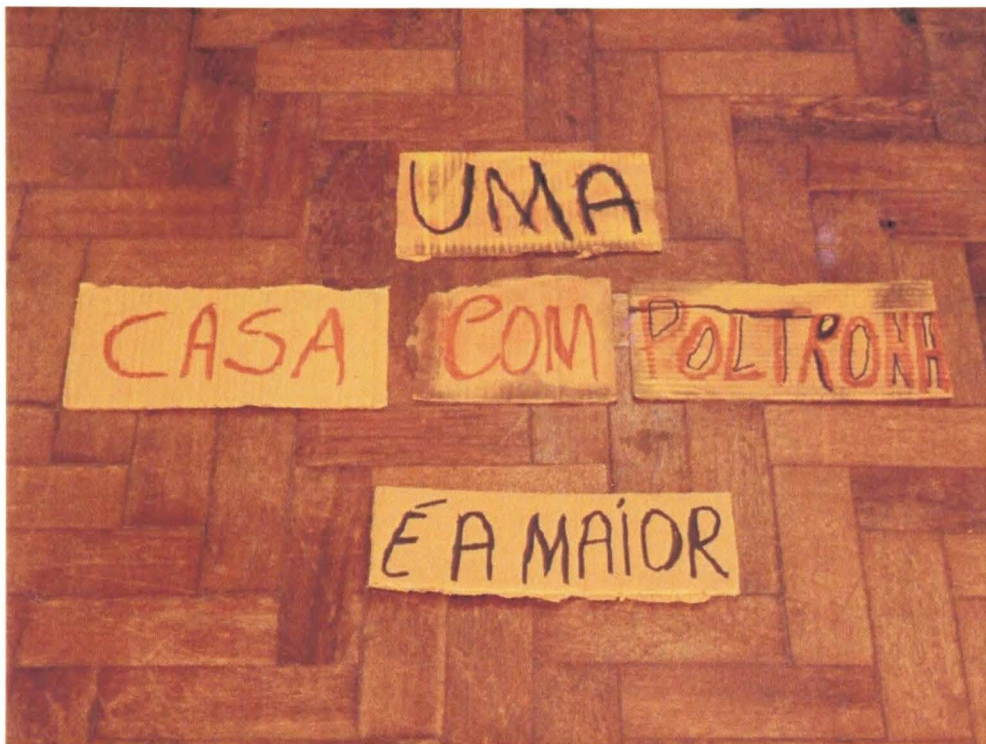 UMA
CASA COM POLTRONA
É A MAIOR